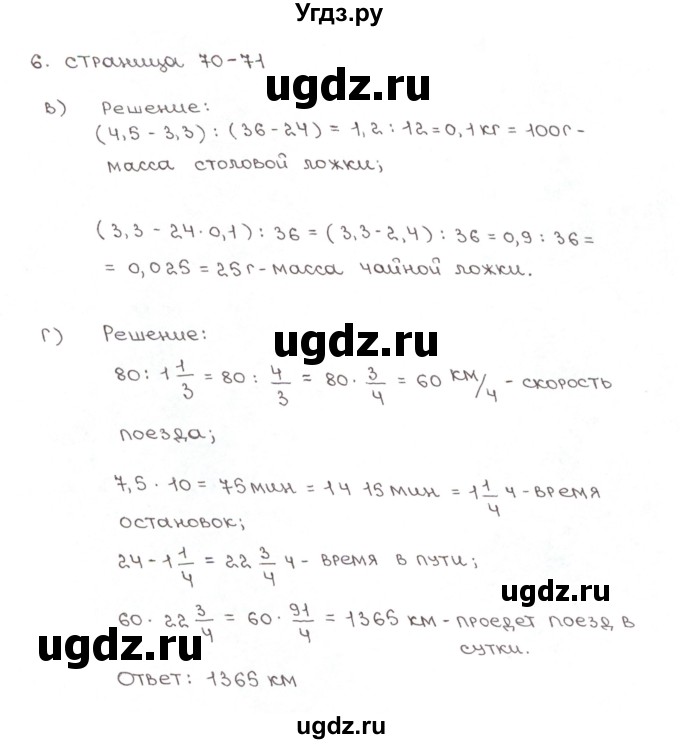 Угдз.ру
6. страница 70-71
ugdz.ru
в) Решение:
(4,5 - 3,3) : (36 - 24) = 1,2 : 12 = 0,1 кг = 100г -
масса столовой ложки;
(3,3 - 24 · 0,1) : 36 = (3,3 - 2,4) : 36 = 0,9 : 36 =
= 0,025 = 25г - масса чайной ложки.
г) Решение:
ugdz.ru
80 : 1 1/3 = 80 : 4/3 = 80 · 3/4 = 60 км/ч - скорость
поезда;
7,5 · 10 = 75 мин = 1ч 15 мин = 1 1/4 ч - время
остановок;
24 - 1 1/4 = 22 3/4 ч - время в пути;
ugdz.ru
60 · 22 3/4 = 60 · 91/4 = 1365 км - проедет поезд в
сутки.
ugdz.ru
Ответ: 1365 км
ugdz.ru